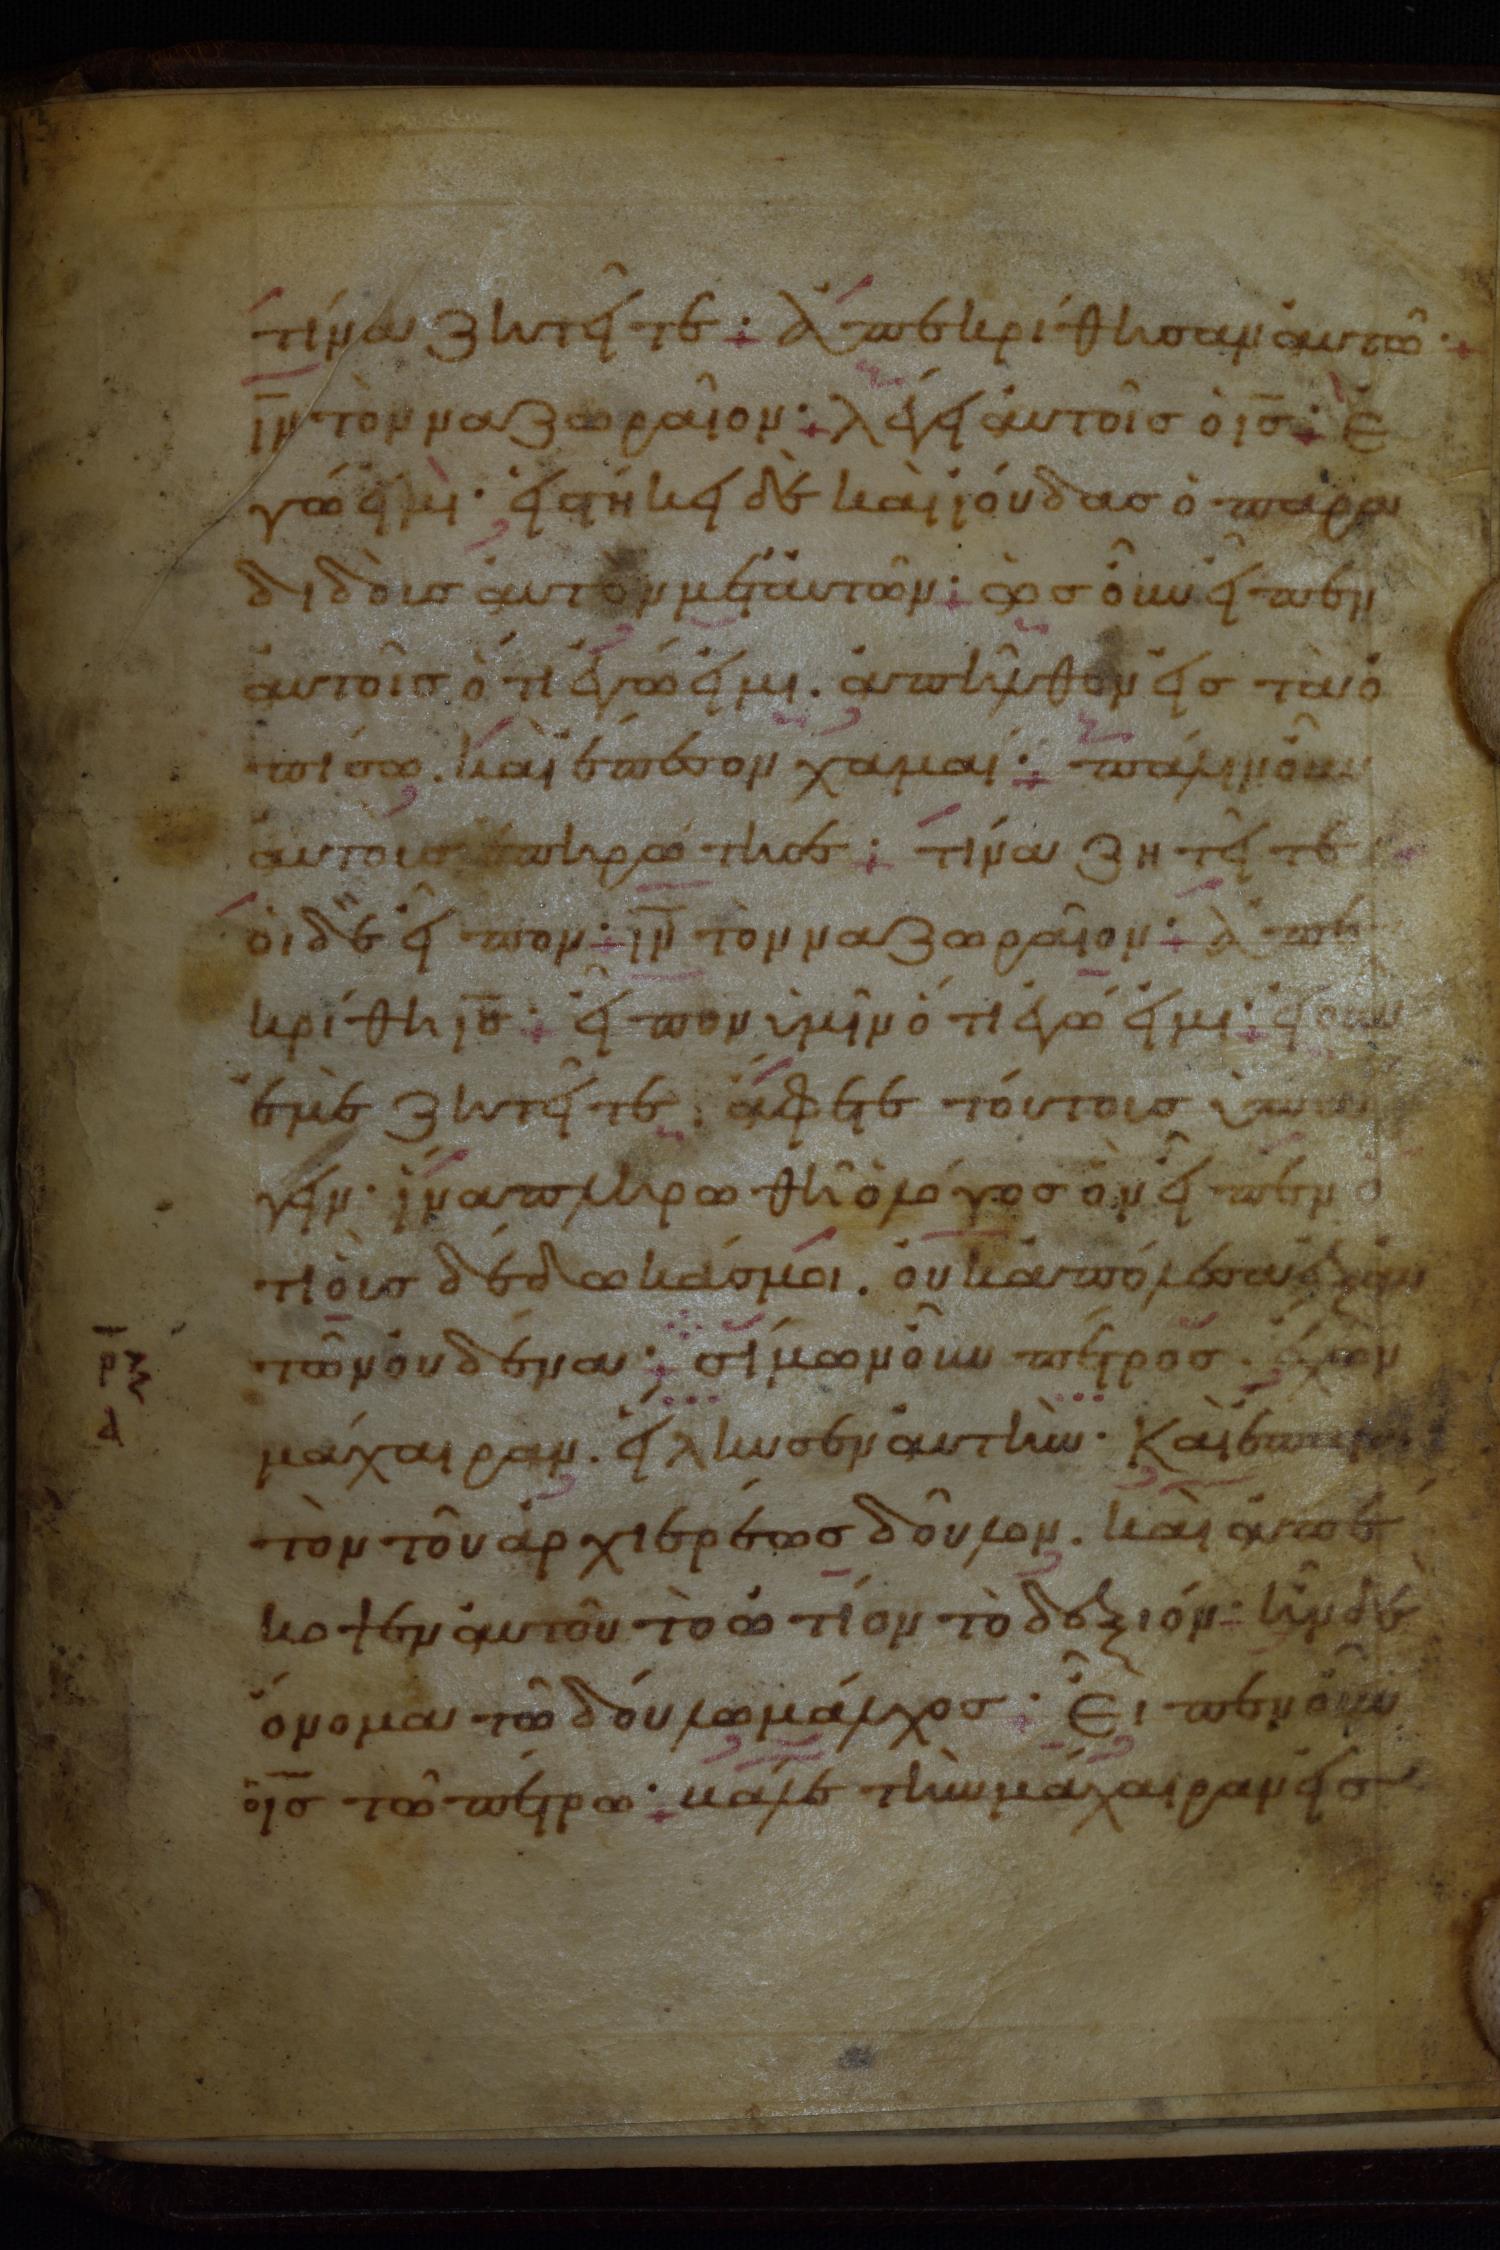 τίνα ζητεῖτε· ἀπεκρίθησαν αὐτῶ·
ιν τὸν ναζωραῖον· λέγει αὐτοῖς ὁ ις· ἐ
γώ εἰμι· εἱστήκει δὲ καὶ ἰούδας ὁ παρα
διδοὺς αὐτὸν μετ' αὐτῶν· ὡς οὖν εἶπεν
αὐτοῖς ὅτι ἐγώ εἰμι. ἀπῆλθον εἰς τὰ ὀ
πίσω. καὶ ἔπεσον χαμαί· πάλιν οὖν
αὐτοὺς ἐπηρώτησε· τίνα ζητεῖτε
οἱ δὲ εἶπον· ιν τὸν ναζωραῖον· ἀπε
κρίθη ις· εἶπον ὑμῖν ὅτι ἐγώ εἰμι· εἰ οὖν
ἐμὲ ζητεῖτε. ἄφετε τούτους ὑπά
γειν· ἵνα πληρωθῆ ὁ λόγος ὃν εἶπεν ὅ
τι οὓς δέδωκάς μοι. οὐκ ἀπώλεσα ἐξ αὐ
τῶν οὐδένα· σίμων οὖν πέτρος. ἔχων
μάχαιραν. εἵλκυσεν αὐτὴν· Καὶ ἔπαισε
τὸν τοῦ ἀρχιερέως δοῦλον. καὶ ἀπέ
κοψεν αὐτοῦ τὸ ὠτίον τὸ δεξιόν· ἦν δὲ
ὄνομα τῶ δούλω μάλχος· Εἶπεν οὖν
ὁ ις τῶ πέτρω· βάλε τὴν μάχαιραν εἰς
ρξ
α